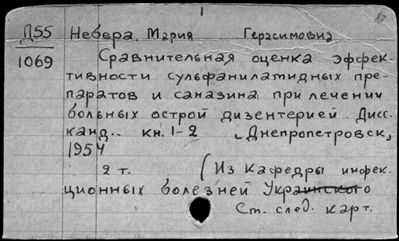 Д55 Небера, Мария Герасимовна
1069 Сравнительная оценка эффек-
тивности сульфаниламидных пре-
паратов и саназина при лечении
больных острой дизентерией. Дисс.
канд.. кн. 1-2 Днепропетровск,
1954
2 т. (Из кафедры инфек-
ционных болезней Украинского
Ст. след. карт.